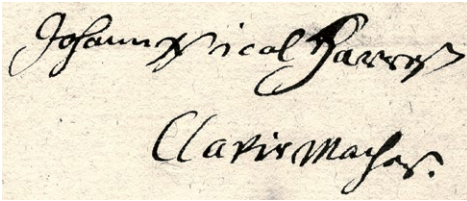 Johann Nicol Harreß
Clavirmacher.